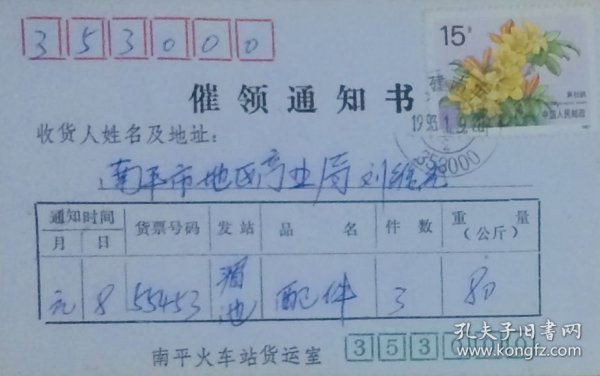 353000
15分
黄杜鹃
中国人民邮政
催领通知书
1993.1.9.
353000
收货人姓名及地址：
南平市地区商业局刘
通知时间 货票号码 发站 品名 件数 重量（公斤）
月 日
元 8 55453 配件 3 80
南平火车站货运室 353000
孔夫子旧书网